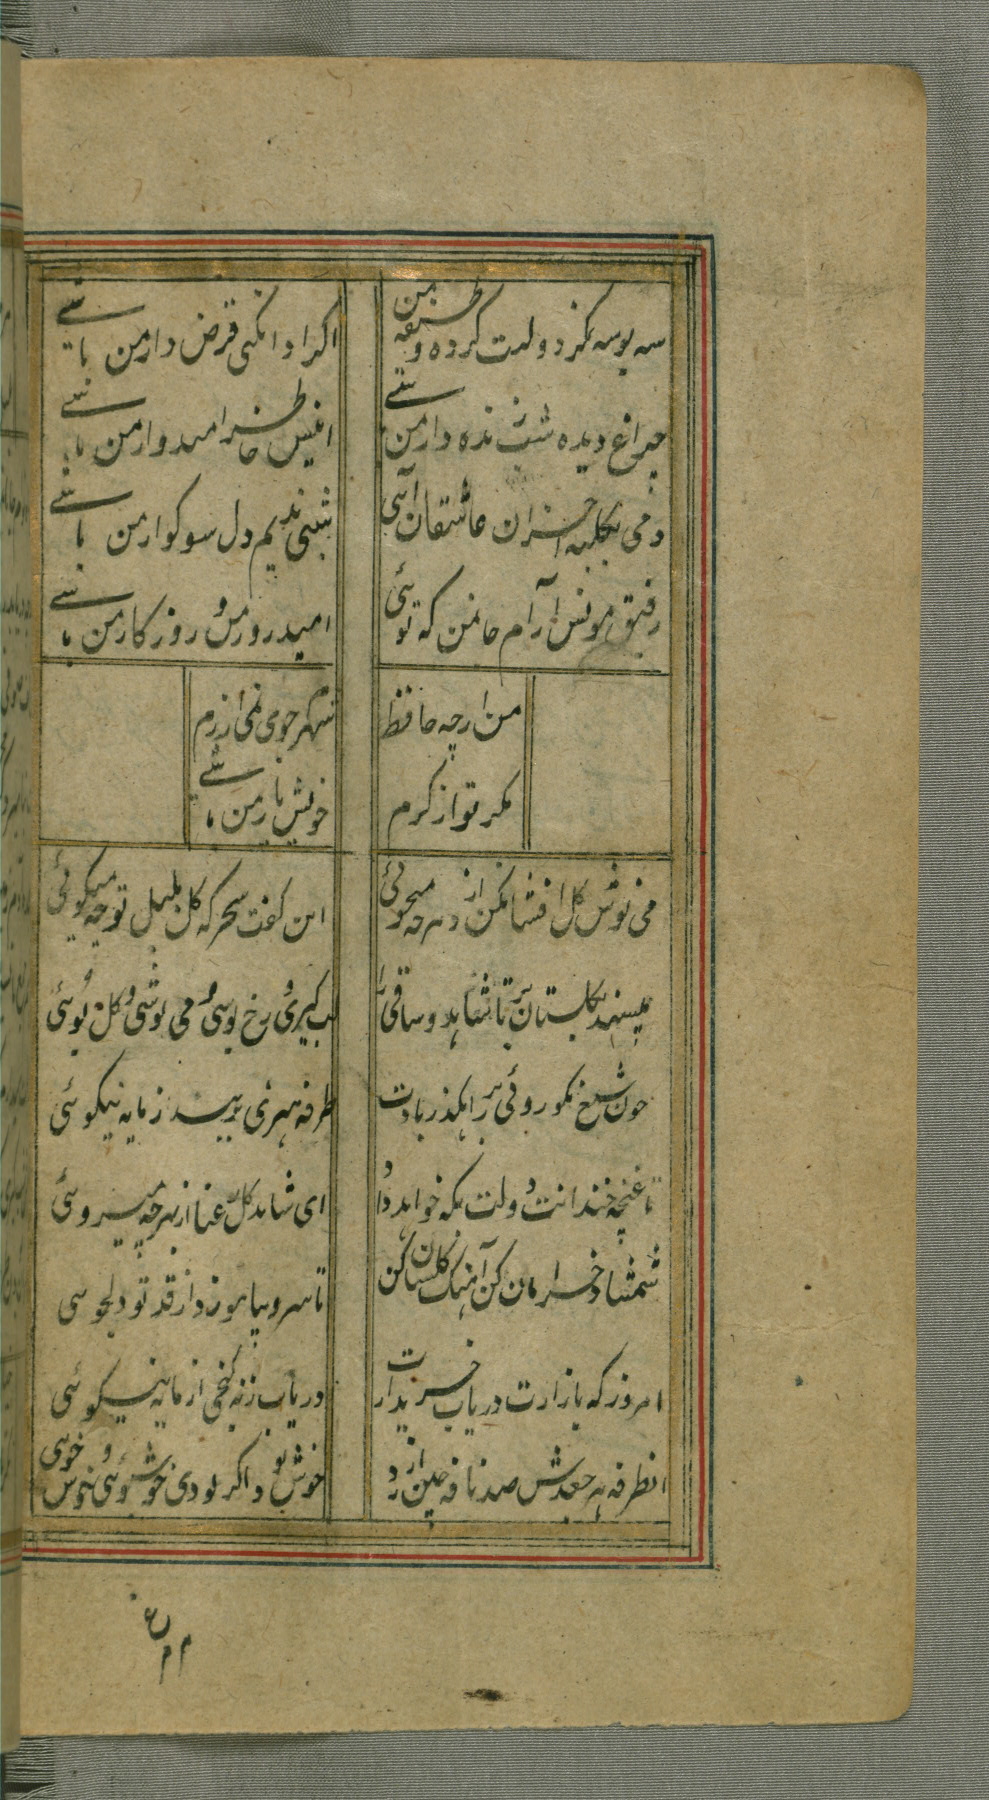 سه بوسه کز دو لبت کرده وظیفه من
اکر ادا نکنی قرض دار من باشے
چراغ دیده شب زنده دار من شے
انیس خاطر امیدوار من باشے
دمی بکلبه احزان عاشقان آئی
شبی ندیم دل سوکوار من باشے
رفیق و مونس و آرام جانمن که توئی
امید روز من و روزکار من باشے
من ارچه حافظ
شهرم جوی نمی ارزم
مکر تو از کرم
خویش یار من باشے
می نوش کل افشانکن از دهر چه میجوئی
این کفت سحرکه کل بلبل تو چه میکوئی
مسند بکلستان بر تا شاهد و ساقی را
لب کیری و رخ بوسی و می نوشی و کل بوئی
چون شمع نکوروئی بر راهکذر بادت
طرفه هنری بربند ز مایه نیکوئی
تا غنچه خندانت دولت بکه خواهد داد
ای شاخ کل رعنا از بهر چه میروئی
شمشاد خرامان کن آهنک کلستان کن
تا سرو بیاموزد از قد تو دلجوئی
امروز که بازارت دریاب خریدارست
دریاب و بنه کنجی از مایه نیکوئی
ان طرفه هر جعدش صد نافه چین ارزد
خوش بودی اکر بودی خوشبوئی و خوش خوئی